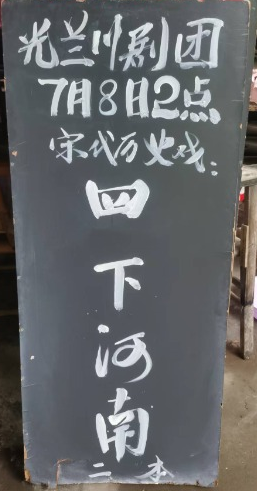 光兰川剧团
7月8日2点
宋代历史戏:
四
下
河
南
二本